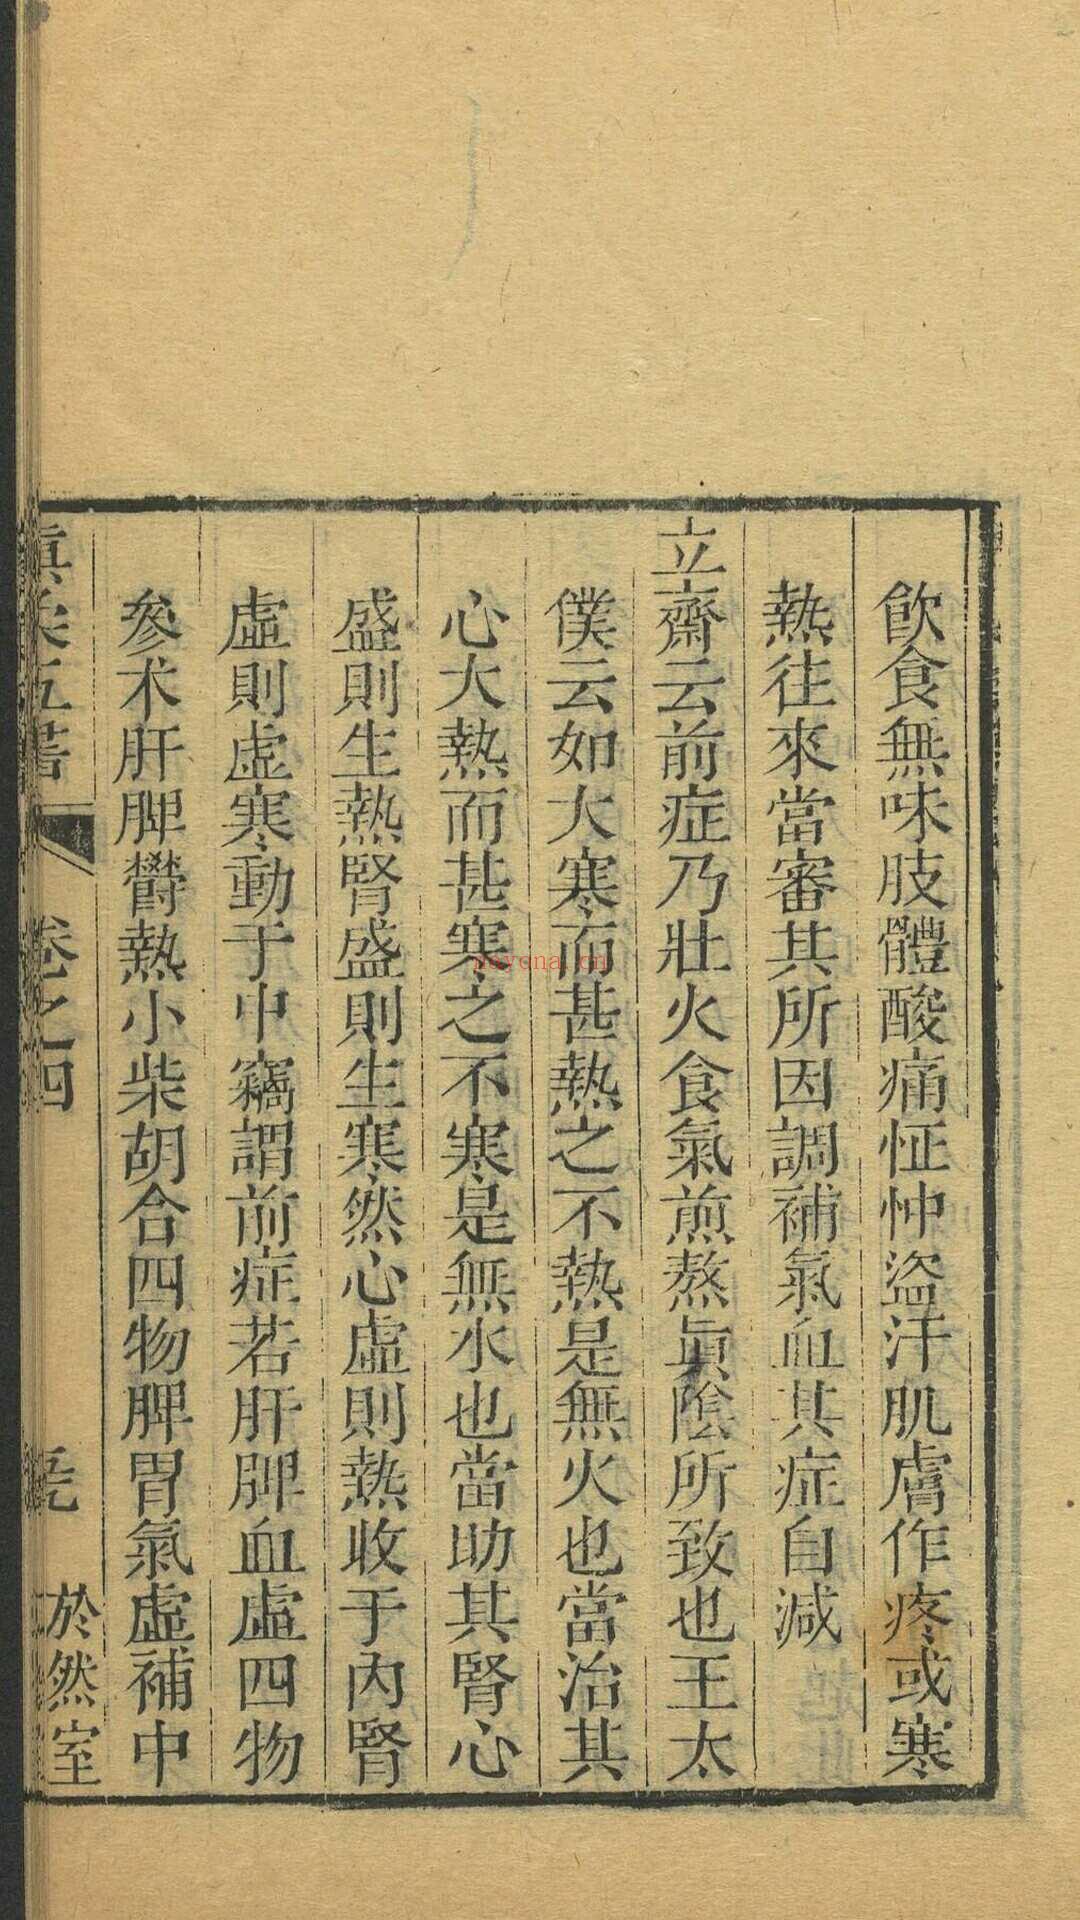 飲食無味肢體酸痛怔忡盜汗肌膚作疼或寒
熱往來當審其所因調補氣血其症自減
立齋云前症乃壯火食氣煎熬眞陰所致也王太
僕云如大寒而甚熱之不熱是無火也當治其
心大熱而甚寒之不寒是無水也當助其腎心
盛則生熱腎盛則生寒然心虛則熱收于內腎
虛則虛寒動于中竊謂前症若肝脾血虛四物
參术肝脾欝熱小柴胡合四物脾胃氣虛補中
五書
卷之四
於然室